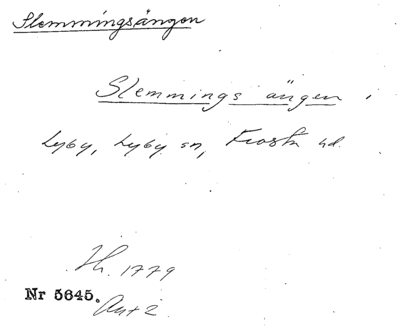 Slemmingsängen
Slemmings ängen i
Lyby, Lyby sn, Frosta hd.
Sk. 1779
Nr 5645.
Akt 2